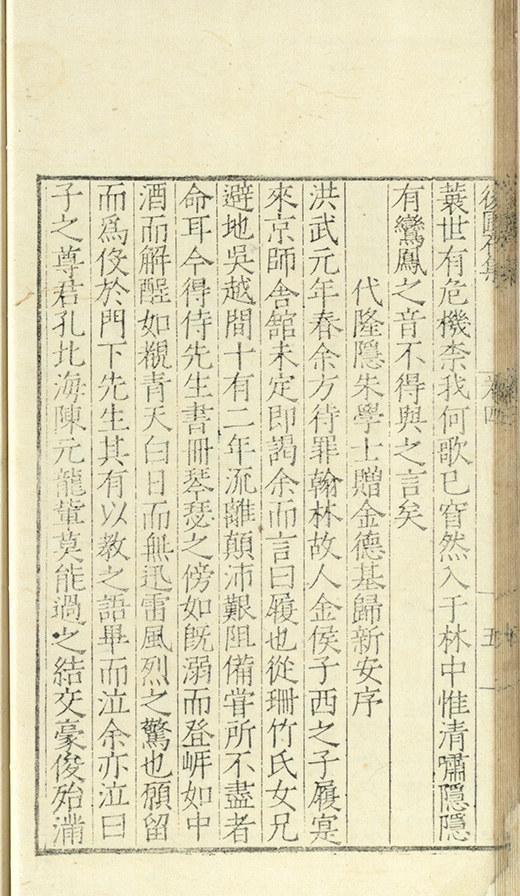 後圃存集 卷四 五
葉世有危機柰我何歌已窅然入于林中惟清嘯隱隱
有鸞鳳之音不得與之言矣
代隆隱朱學士贈金德基歸新安序
洪武元年春余方待罪翰林故人金侯子西之子履寔
來京師舍舘未定即謁余而言曰履也從珊竹氏女兄
避地吳越間十有二年流離顛沛艱阻備甞所不盡者
命耳今得侍先生書冊琴瑟之傍如旣溺而登岸如中
酒而解酲如覩青天白日而無迅雷風烈之驚也願留
而為役於門下先生其有以教之語畢而泣余亦泣曰
子之尊君孔北海陳元龍軰莫能過之結交豪俊殆滿